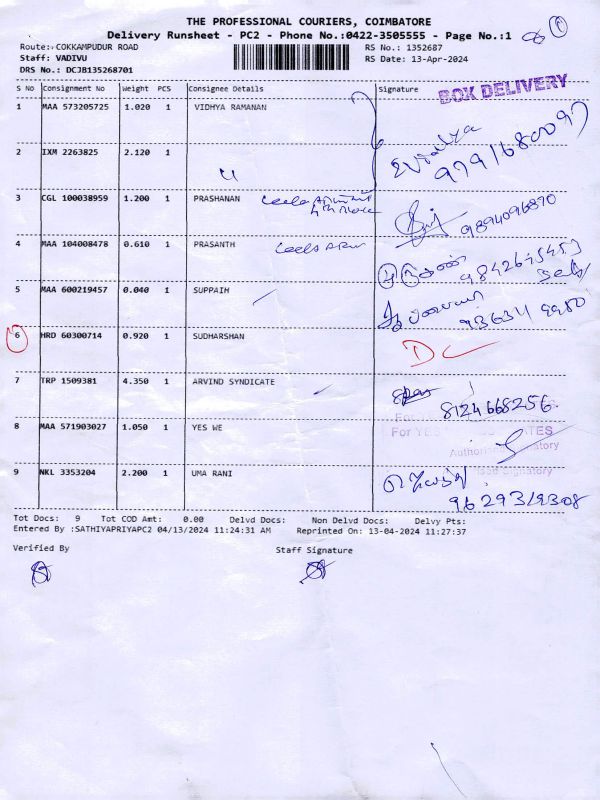 THE PROFESSIONAL COURIERS, COIMBATORE
Delivery Runsheet - PC2 - Phone No.:0422-3505555 - Page No.:1
Route: COKKAMPUDUR ROAD RS No.: 1352687
Staff: VADIVU RS Date: 13-Apr-2024
DRS No.: DCJB135268701
BOX DELIVERY
S No Consignment No Weight PCS Consignee Details Signature
1 MAA 573205725 1.020 1 VIDHYA RAMANAN
2 IXM 2263825 2.120 1
9791680097
3 CGL 100038959 1.200 1 PRASHANAN
9894096870
4 MAA 104008478 0.610 1 PRASANTH
5 MAA 600219457 0.040 1 SUPPAIH
6 HRD 60300714 0.920 1 SUDHARSHAN
7 TRP 1509381 4.350 1 ARVIND SYNDICATE
8124668256
8 MAA 571903027 1.050 1 YES WE
For YES
9 NKL 3353204 2.200 1 UMA RANI
9629319308
Tot Docs: 9 Tot COD Amt: 0.00 Delvd Docs: Non Delvd Docs: Delvy Pts:
Entered By :SATHIYAPRIYAPC2 04/13/2024 11:24:31 AM Reprinted On: 13-04-2024 11:27:37
Verified By Staff Signature